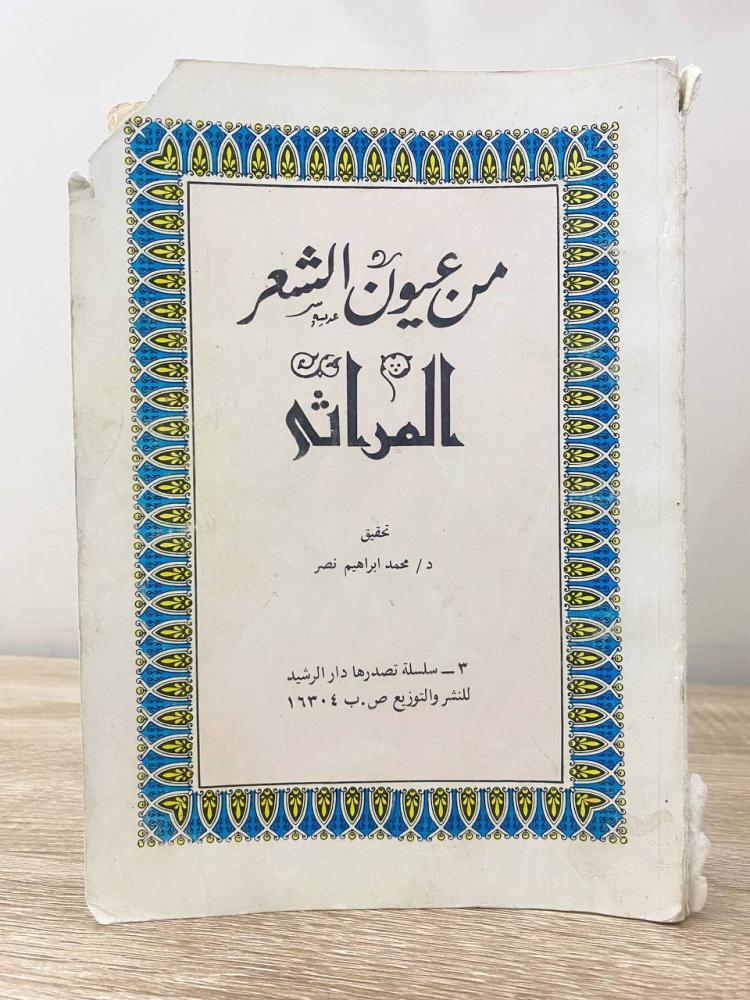 من عيون الشعر
المراثي
تحقيق
د/ محمد ابراهيم نصر
٣ ــ سلسلة تصدرها دار الرشيد
للنشر والتوزيع ص.ب ١٦٣٠٤